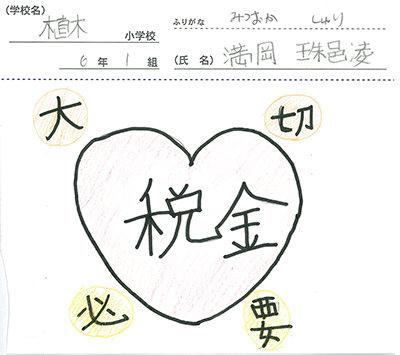 (学校名)
植木 小学校
ふりがな みつおか しゅり
6年1組
(氏 名) 満岡 珠邑凌
大 切
税金
必 要